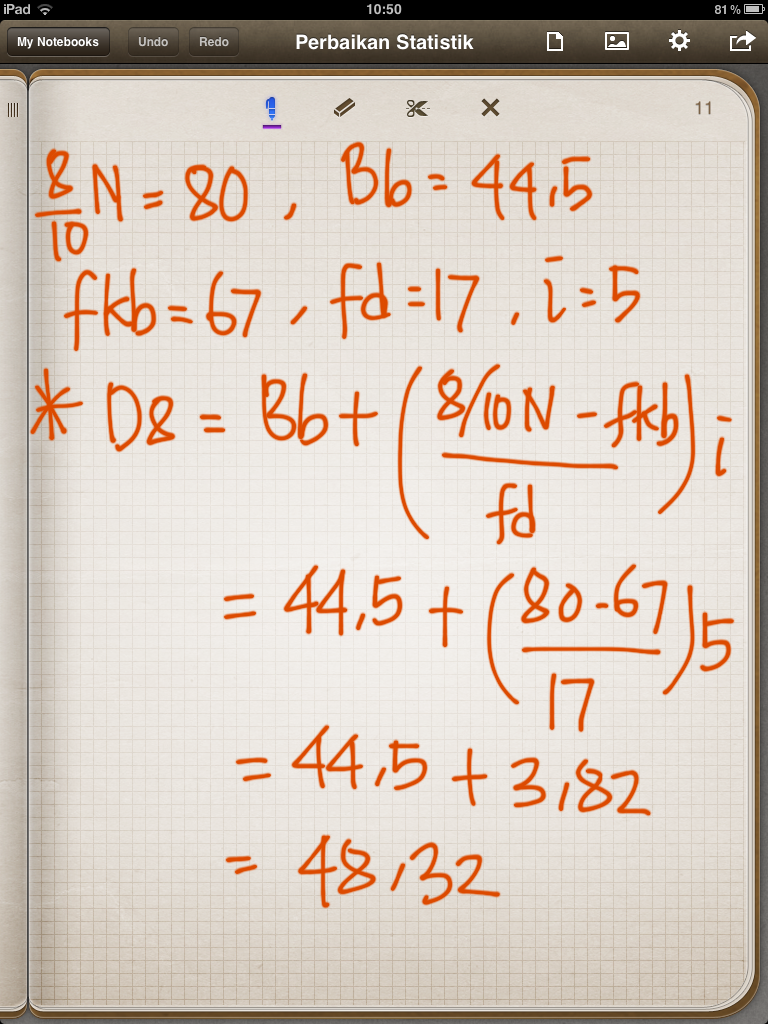 iPad 10:50 81%
My Notebooks Undo Redo Perbaikan Statistik
11
8/10 N = 80 , Bb = 44,5
fkb = 67 , fd = 17 , i = 5
* D8 = Bb + ( (8/10 N - fkb) / fd ) i
= 44,5 + ( (80 - 67) / 17 ) 5
= 44,5 + 3,82
= 48,32